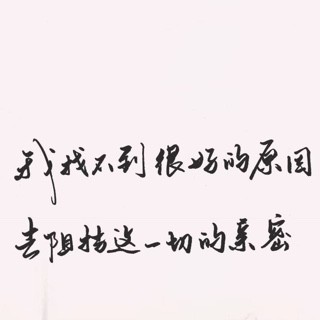 我找不到很好的原因
去阻挡这一切的亲密